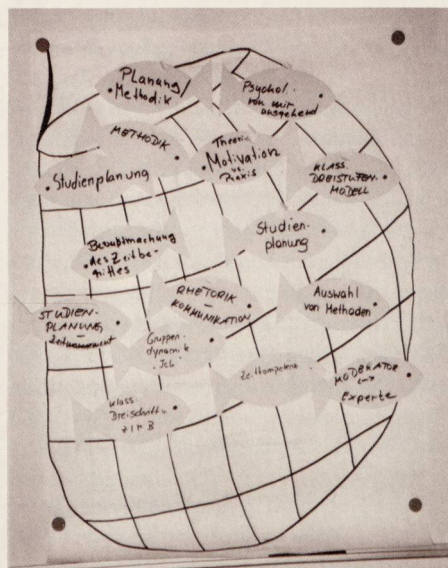 Planung
Methodik
Psychol.
von mir
ausgehend
METHODIK
Theorie
Motivation
Praxis
Studienplanung
KLASS.
DREISTUFEN-
MODELL
Studien-
planung
Bewußtmachung
des Zeitbe-
griffes
RHETORIK
KOMMUNIKATION
Auswahl
von Methoden
STUDIEN-
PLANUNG
Gruppen-
dynamik
"Ich"
Zeitkompetenz
MODERATOR
Experte
klass.
Dreischritt